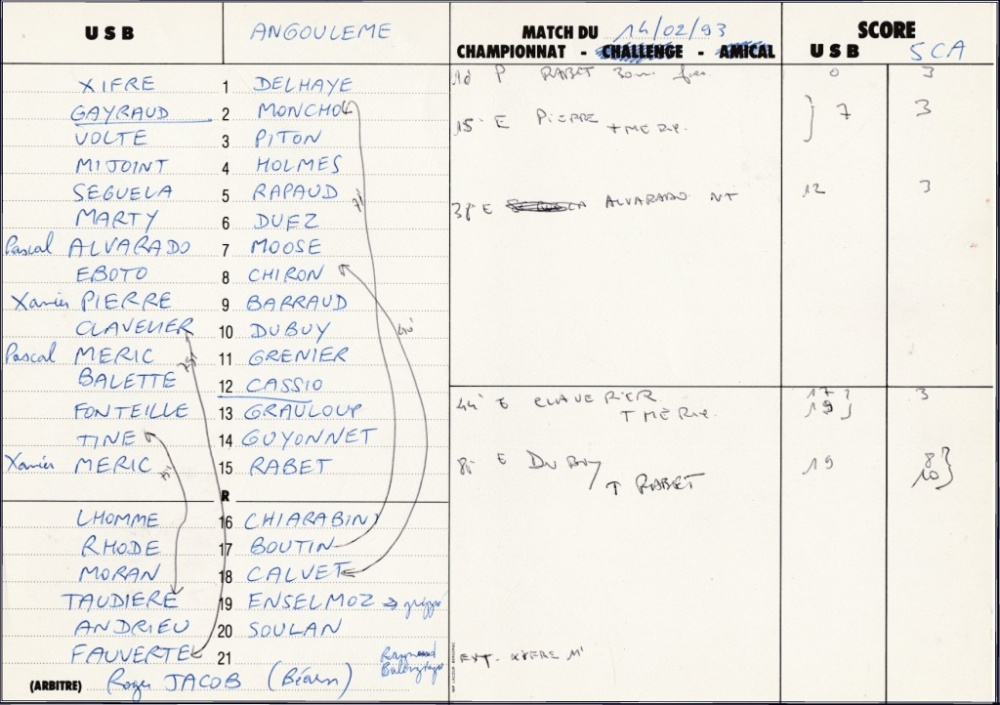 USB ANGOULEME MATCH DU 14/02/93 SCORE
CHAMPIONNAT - CHALLENGE - AMICAL USB SCA
XIFRE 1 DELHAYE
GAYRAUD 2 MONCHO
VOLTE 3 PITON
MIJOINT 4 HOLMES
SEGUELA 5 RAPAUD
MARTY 6 DUEZ
Pascal ALVARADO 7 MOOSE
EBOTO 8 CHIRON
Xavier PIERRE 9 BARRAUD
CLAVELIER 10 DUBUY
Pascal MERIC 11 GRENIER
BALETTE 12 CASSIO
FONTEILLE 13 GRAULOUP
TINE 14 GUYONNET
Xavier MERIC 15 RABET
R
LHOMME 16 CHIARABINI
RHODE 17 BOUTIN
MORAN 18 CALVET
TAUDIERE 19 ENSELMOZ
ANDRIEU 20 SOULAN
FAUVERTE 21
(ARBITRE) Roger JACOB (Béarn)
Raymond
P RABET 30m 0 3
15' E PIERRE 7 3
T MERIC
38' E ALVARADO NT 12 3
44' E CLAVERIER 17 3
T MERIC 19
E DUBUY 19 8
T RABET 10
XIFRE